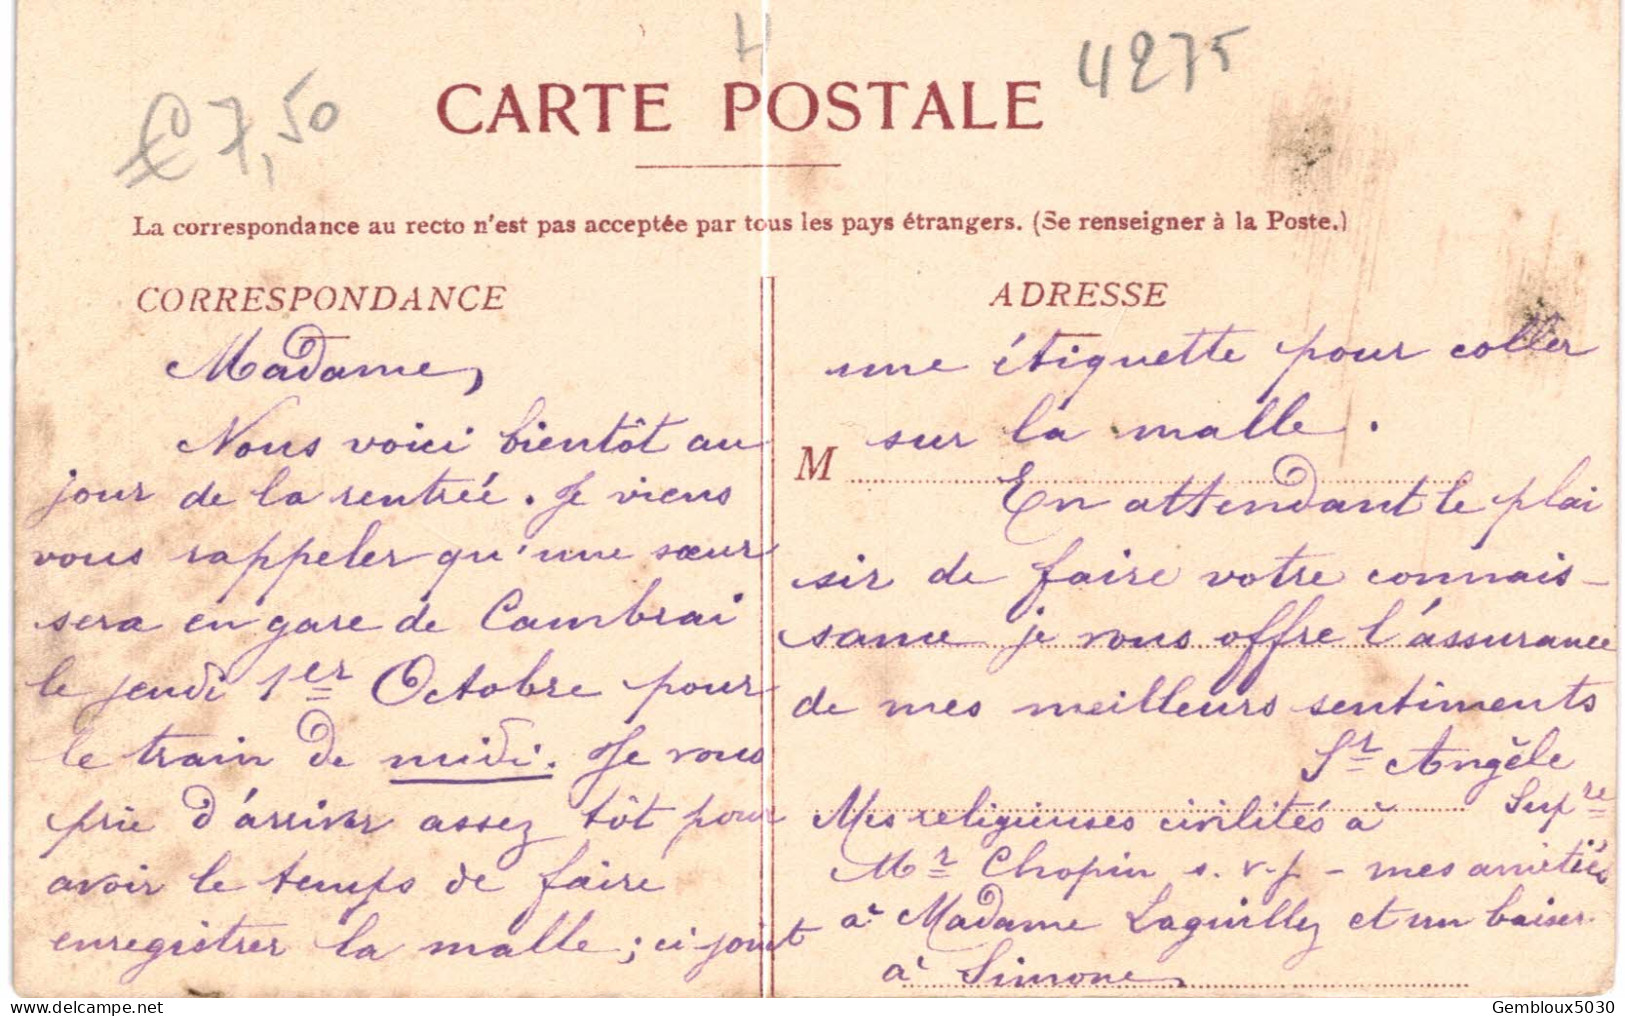 H
4275
€ 7,50
CARTE POSTALE
La correspondance au recto n'est pas acceptée par tous les pays étrangers. (Se renseigner à la Poste.)
CORRESPONDANCE
Madame,
Nous voici bientôt au
jour de la rentrée. Je viens
vous rappeler qu'une sœur
sera en gare de Cambrai
le jeudi 1er Octobre pour
le train de midi. Je vous
prie d'arriver assez tôt pour
avoir le temps de faire
enregistrer la malle ; ci joint
ADRESSE
une étiquette pour coller
sur la malle.
M
En attendant le plai
sir de faire votre connais-
sance je vous offre l'assurance
de mes meilleurs sentiments
Sr Angèle
Supre
Mes religieuses civilités à
Mr Chopin s.v.p - mes amitiés
à Madame Laguilly et un baiser
à Simone.
Gembloux5030